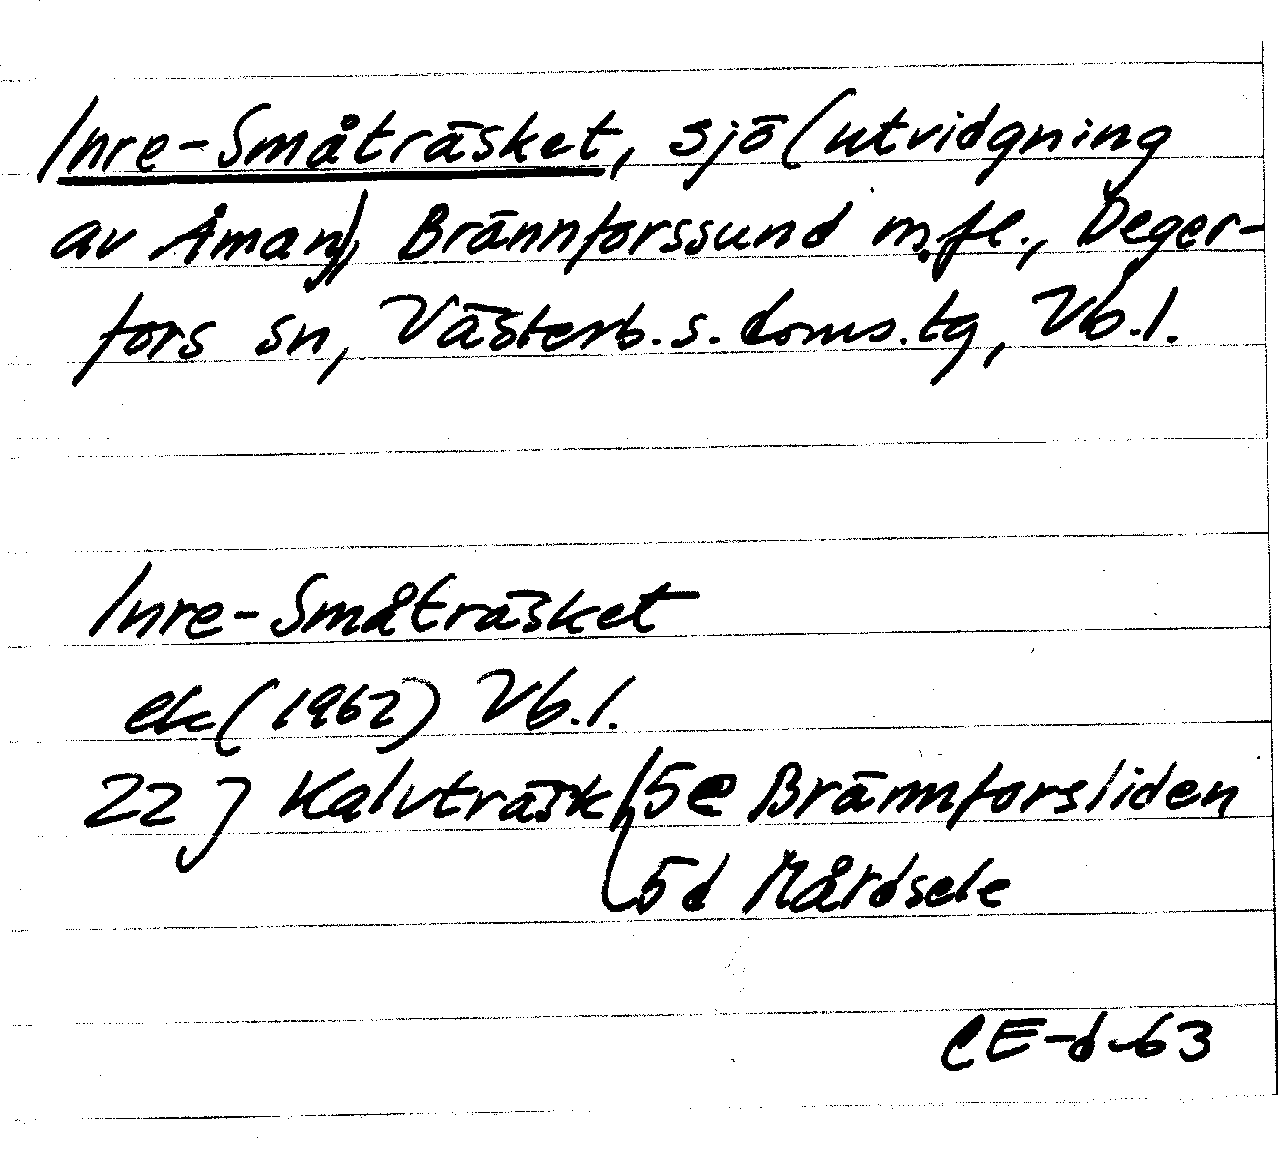 Inre-Småträsket, sjö (utvidgning
av Åman), Brännforssund m.fl., Deger-
fors sn, Västerb. s. doms. tg, Vb.l.
Inre-Småträsket
ek (1962) Vb.l.
22 J Kalvträsk 5e Brännforsliden
5d Mårdsele
CE-d-63